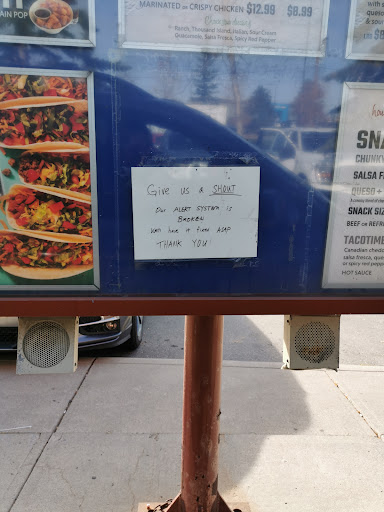 AIN POP
MARINATED or CRISPY CHICKEN $12.99 $8.99
Ranch, Thousand Island, Italian, Sour Cream
Guacamole, Salsa Fresca, Spicy Red Pepper
Give us a SHOUT
Our ALERT SYSTEM is
BROKEN
THANK YOU
SNA
CHUNKY
SALSA F
QUESO +
SNACK SIZ
BEEF OR REFR
TACOTIME
Canadian chedd
salsa fresca, ques
or spicy red peppe
HOT SAUCE